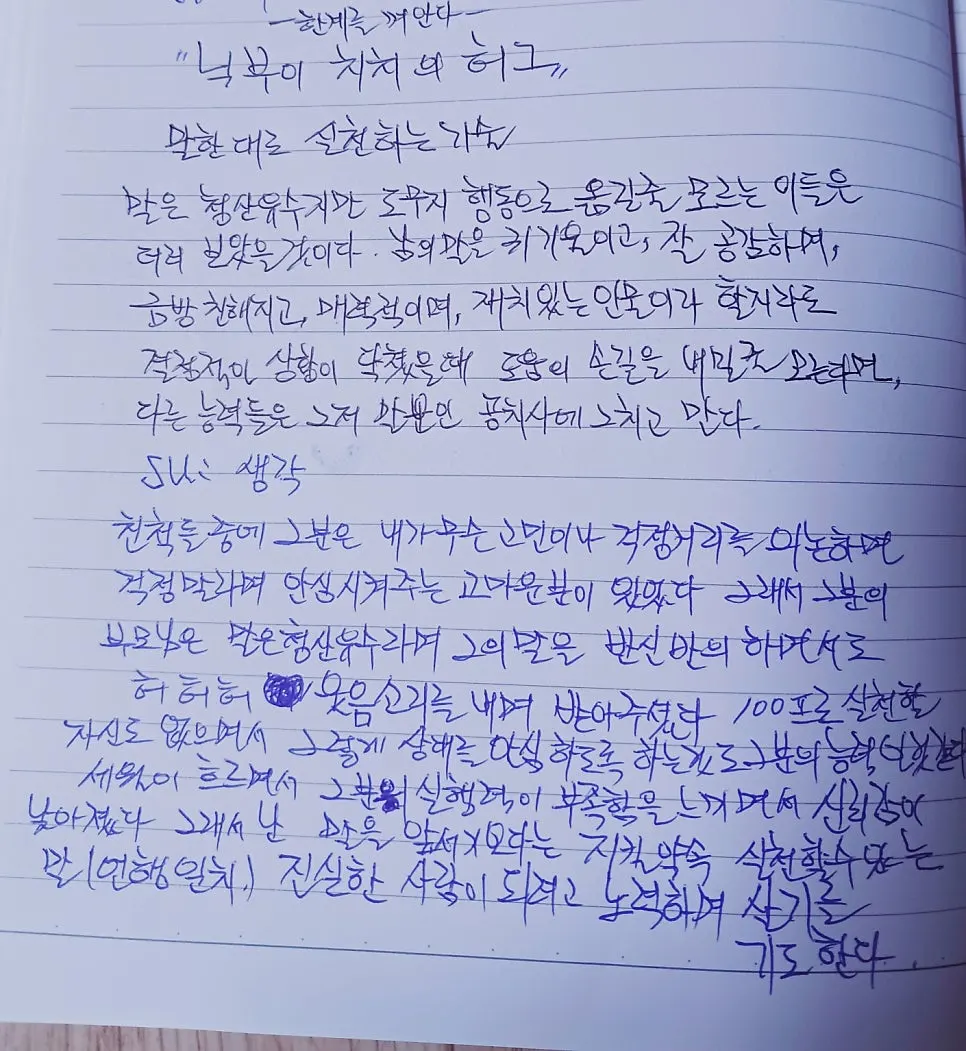 -한계를 껴안다-
"닉 부이 치치 의 허그"
말한 대로 실천하는 가슴
말은 청산유수지만 도무지 행동으로 옮길줄 모르는 이들은
더러 보았을것이다. 남의말을 귀기울이고, 잘 공감하며,
금방 친해지고, 매력적이며, 재치있는 인물이라 할지라도
결정적인 상황이 닥쳤을때 도움의 손길을 내밀줄 모른다면,
다른 능력들은 그저 말뿐인 공치사에 그치고 만다.
SU: 생각
친척들 중에 그분은 내가 무슨 고민이나 걱정거리를 의논하면
걱정말라며 안심시켜주는 고마운분이 있었다 그래서 그분의
부모님은 말은청산유수라며 그의말을 반신반의 하면서도
허 허허 웃음소리를 내며 받아주셨다 100프로 실천할
자신도 없으면서 그렇게 상대를 안심 하도록 하는것도 그분의 능력
세월이 흐르면서 그분의 실행력이 부족함을 느끼며서 신뢰감이
낮아졌다 그래서 난 말을 앞서기보다는 지킬약속 실천할수있는
말(언행일치.) 진실한 사람이 되려고 노력하며 살기를
기도한다